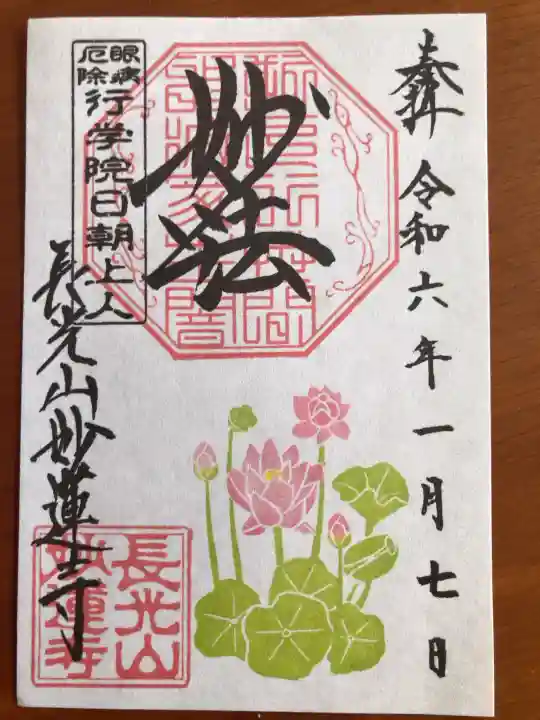 奉拝 令和六年一月七日
妙法
眼病
厄除
行学院日朝上人
長光山妙蓮寺
長光山
妙蓮寺